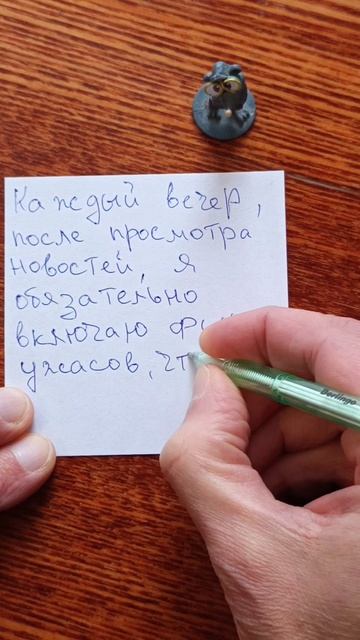 Каждый вечер,
после просмотра
новостей, я
обязательно
включаю
ужасов, чт
Berlingo